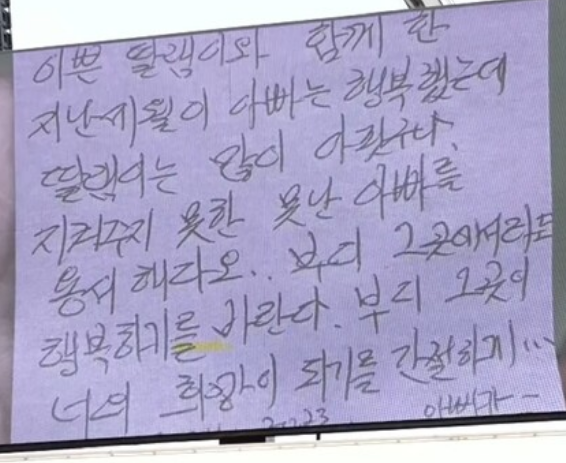 이쁜 딸램이와 함께 한
지난세월이 아빠는 행복했는데
딸램이는 많이 아팠구나.
지켜주지 못한 못난 아빠를
용서해다오.. 부디 그곳에서라도
행복하기를 바란다. 부디 그곳이
너의 희망이 되기를 간절하게...
아빠가-